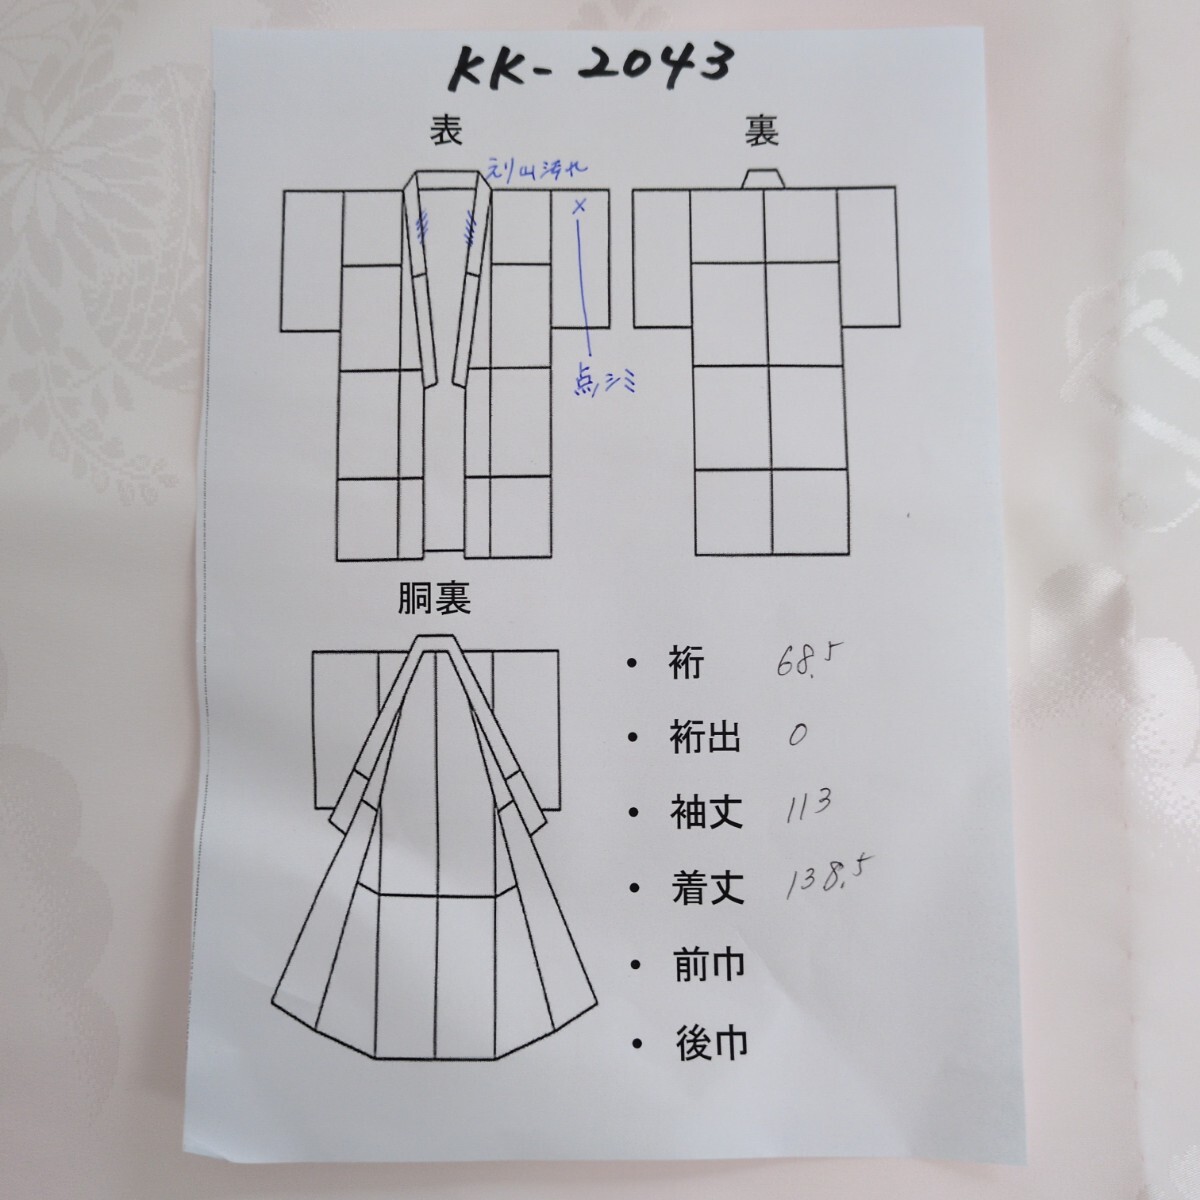 KK-2043
表
裏
えり山汚れ
×
点シミ
胴裏
・裄 68.5
・裄出 0
・袖丈 113
・着丈 138.5
・前巾
・後巾